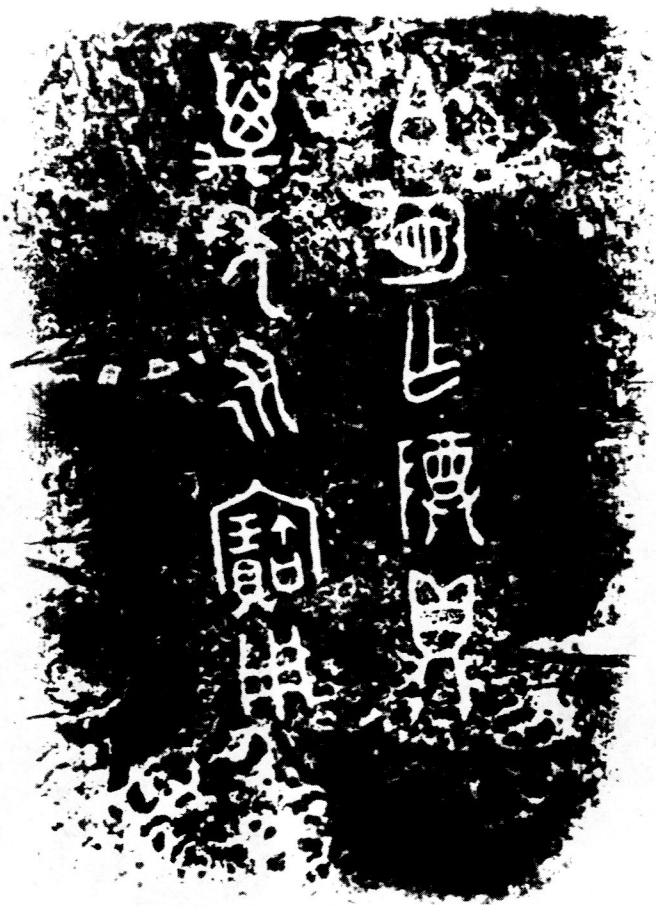 白乍尊彝
萬年永寶用